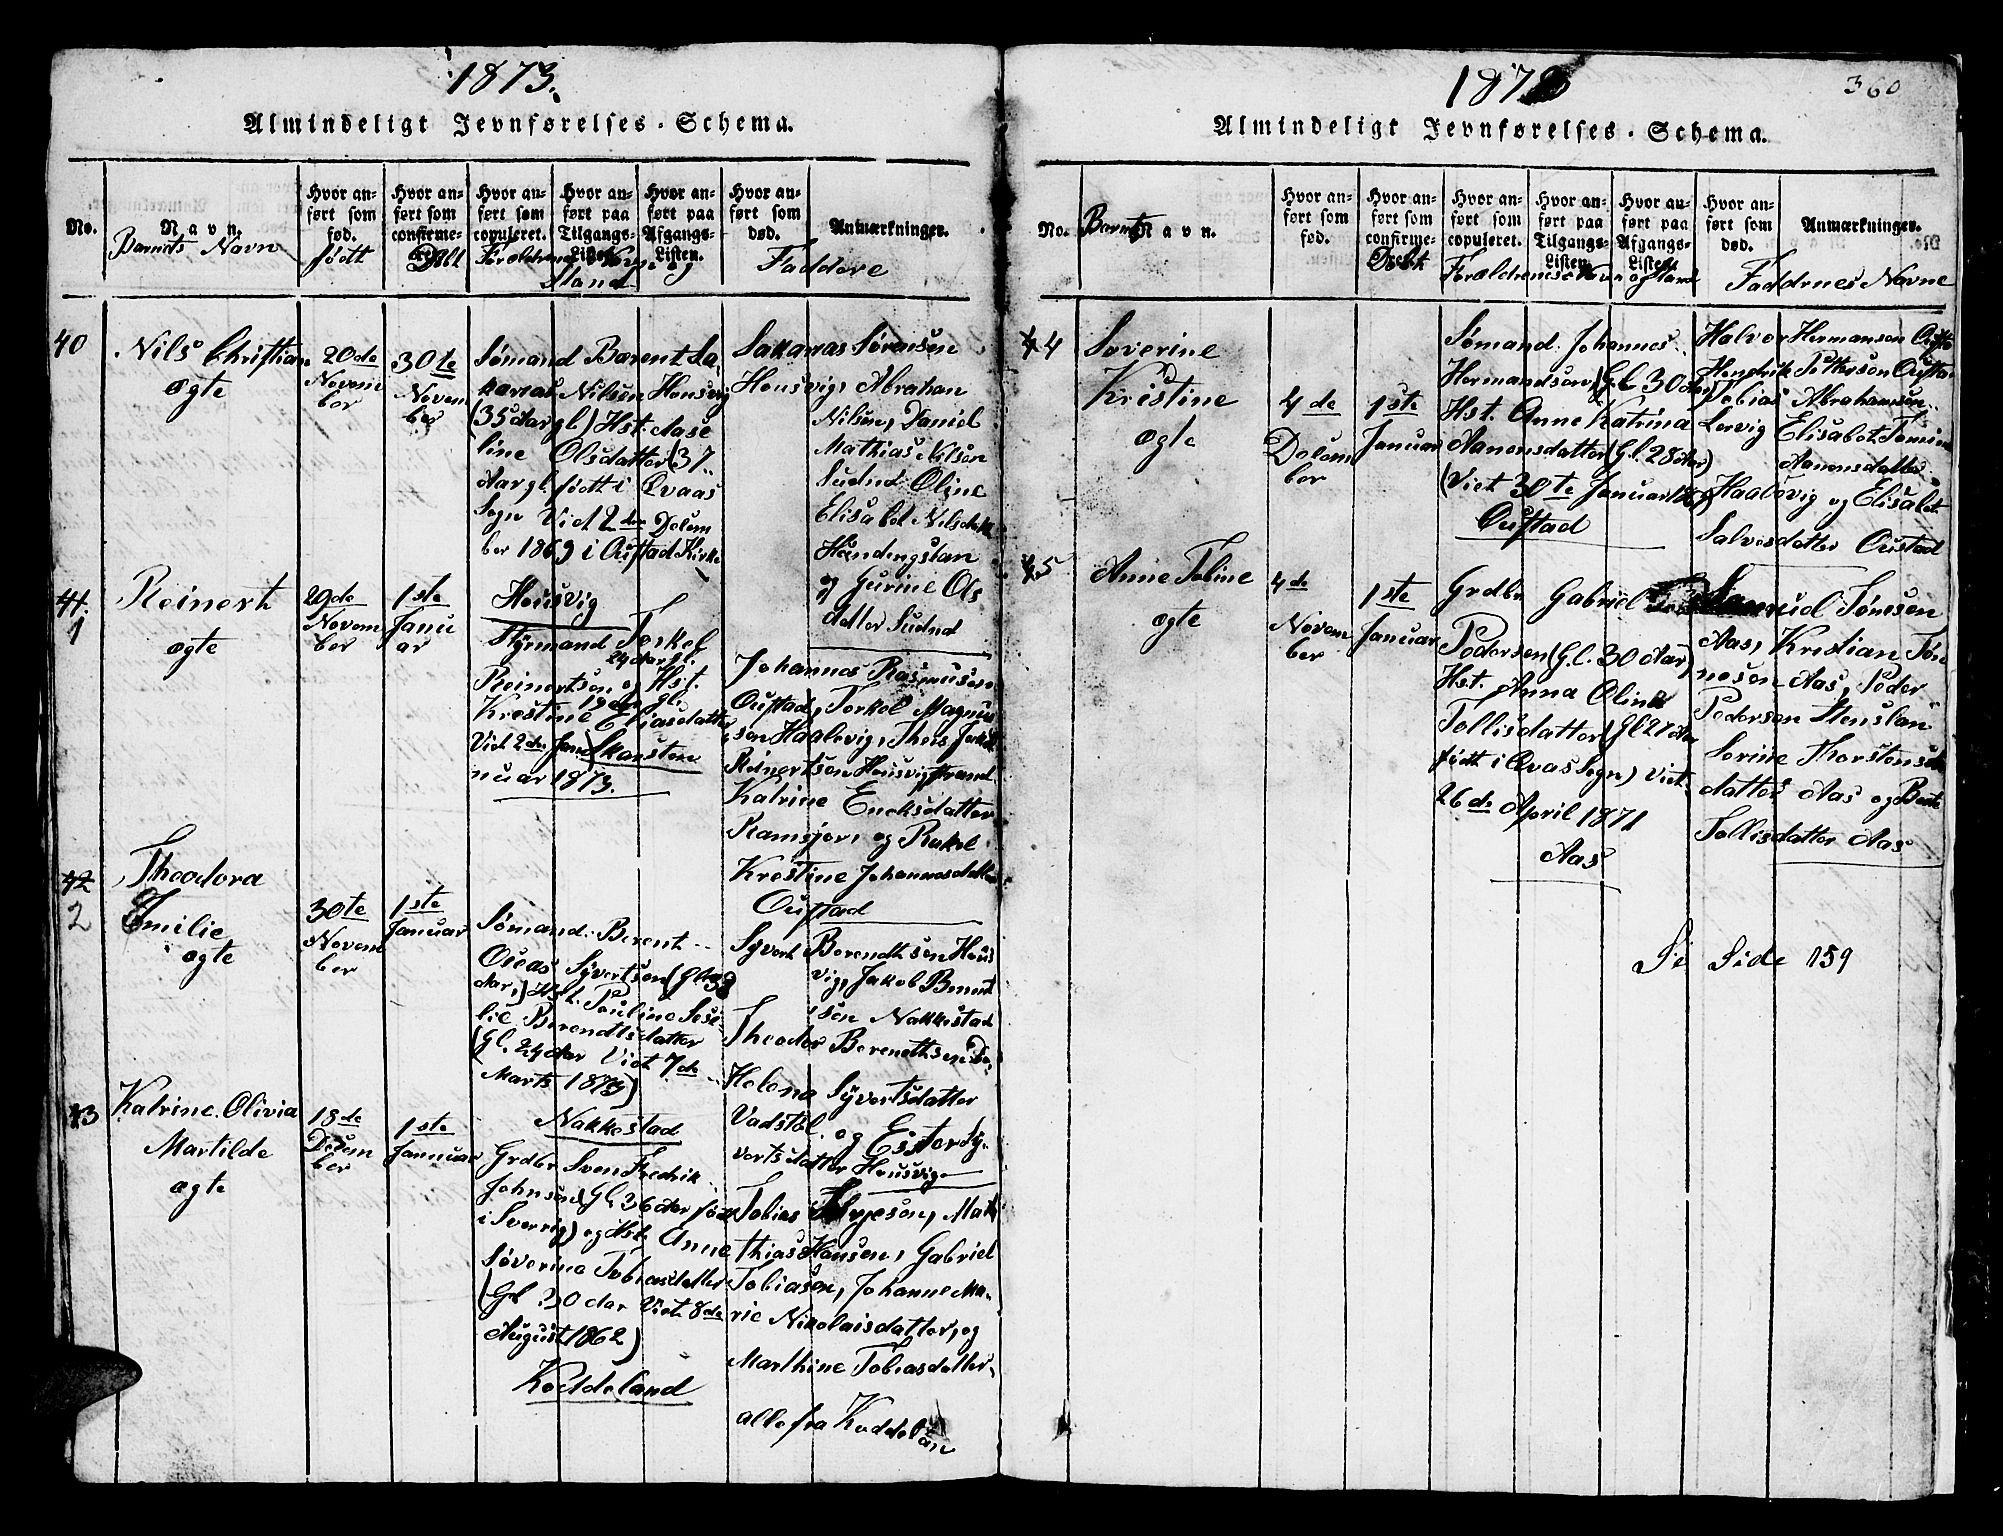 1873.
Almindeligt Jevnførelses-Schema.
No.
Navn.
Barnets Navn
Hvor an-
ført som
fød.
født
Hvor an-
ført som
confirme-
Døbt
Hvor an-
ført som
copuleret.
Hvor an-
ført paa
Tilgangs-
Listen.
Hvor an-
ført paa
Afgangs-
Listen.
Forældrenes Navn og
Stand
Hvor an-
ført som
død.
Anmærkninger.
Faddere
40
Nils Christian
ægte
20de
Novem
ber
30te
Novem
ber
Sømand Bærent Sa-
karias Nilsen Housvig
(35 Aar gl) Hst. Aase
line Olsdatter (37
Aar gl. født i Qvaas
Sogn Viet 2den Decem
ber 1869 i Oustad Kirke
Housvig
Sakarias Sørensen
Housvig, Abraham
Nilsen, Daniel
Mathias Nilsen
Sudnd Oline
Elisabet Nilsdatter
Høndingslan
og Gurine Ols
datter Sudnd
41.
1
Reinert
ægte
29de
Novem
ber
1ste
Janu
ar
Styrmand Torkel
24 Aar gl.
Reinertsen og Hst.
19 Aar gl.
Krestine Eliasdatter
Viet 2den Jan
nuar 1873.
Skansten
Johannes Rasmusen
Oustad, Torkel Magnus
sen Haalevig, Theis Jakob
Reinertsen Housvigstrand
Katrine Enoksdatter
Ramsjor, og Rakel
Krestine Johannesdatter
Oustad
42
2
Theodora
Emilie
ægte
30te
Novem
ber
1ste
Januar
Sømand Berent
Oueas Syvertsen (Gl 33
Aar,) Hst. Pauline Sese
lie Berendtsdatter
(Gl. 24 Aar Viet 7de
Marts 1873)
Nakkestad
Syvert Berendtsen Hous
vig, Jakob Berent
sen Nakkestad
Theodor Berendtsen Do,
Helena Syvertsdatter
Vadstøl og Ester Sy-
vertsdatter Housvig
43
Katrine Olivia
Martilde
ægte
18de
Decem
ber
1ste
Januar
Grdbr Sven Fredrik
Johnsen (Gl. 36 Aar født
i Sverrig) og Hst. Anne
Søverine Tobiasdatter
(Gl 30 Aar Viet 8de
August 1862)
Koddeland
Tobias Salvesen, Mat
thias Hansen, Gabriel
Tobiasen, Johanne Ma-
rie Nikolaisdatter, og
Marthine Tobiasdatter,
alle fra Koddelan
1873
360
Almindeligt Jevnførelses-Schema.
No.
Barnets Navn.
Hvor an-
ført som
fød.
Hvor an-
ført som
confirme-
Døbt
Hvor an-
ført som
copuleret.
Hvor an-
ført paa
Tilgangs-
Listen.
Hvor an-
ført paa
Afgangs-
Listen.
Forældrenes Navn og Stand
Hvor an-
ført som
død.
Anmærkninger.
Faddernes Navne
44
Soverine
Kristine
ægte
4de
Decem
ber
1ste
Januar
Sømand Johannes
Hermandsen, (Gl 30 Aar)
Hst. Anne Katrina
Aanensdatter (Gl. 28 Aar)
(Viet 30te Januar
Oustad
Halvor Hermansen
Hendrik Pettersen Oustad
Tobias Abrahamsen
Lervig Elisabet
Aanensdatter
Haalevig og Elisabet
Salvesdatter Oustad
45
Anne Tobine
ægte
4de
Novem
ber
1ste
Januar
Grdbr Gabriel
Pedersen (Gl. 30 Aar)
Hst. Anna Oline
Tollisdatter (Gl 21 Aar
født i Qvas Sogn) Viet
26de April 1871
Aas
Samuel Tønesen
Aas, Kristian Tøn
nesen Aas, Peder
Pedersen Stenslan
Serine Thorstens
datter Aas og Berte
Tollisdatter Aas
Se Side 159